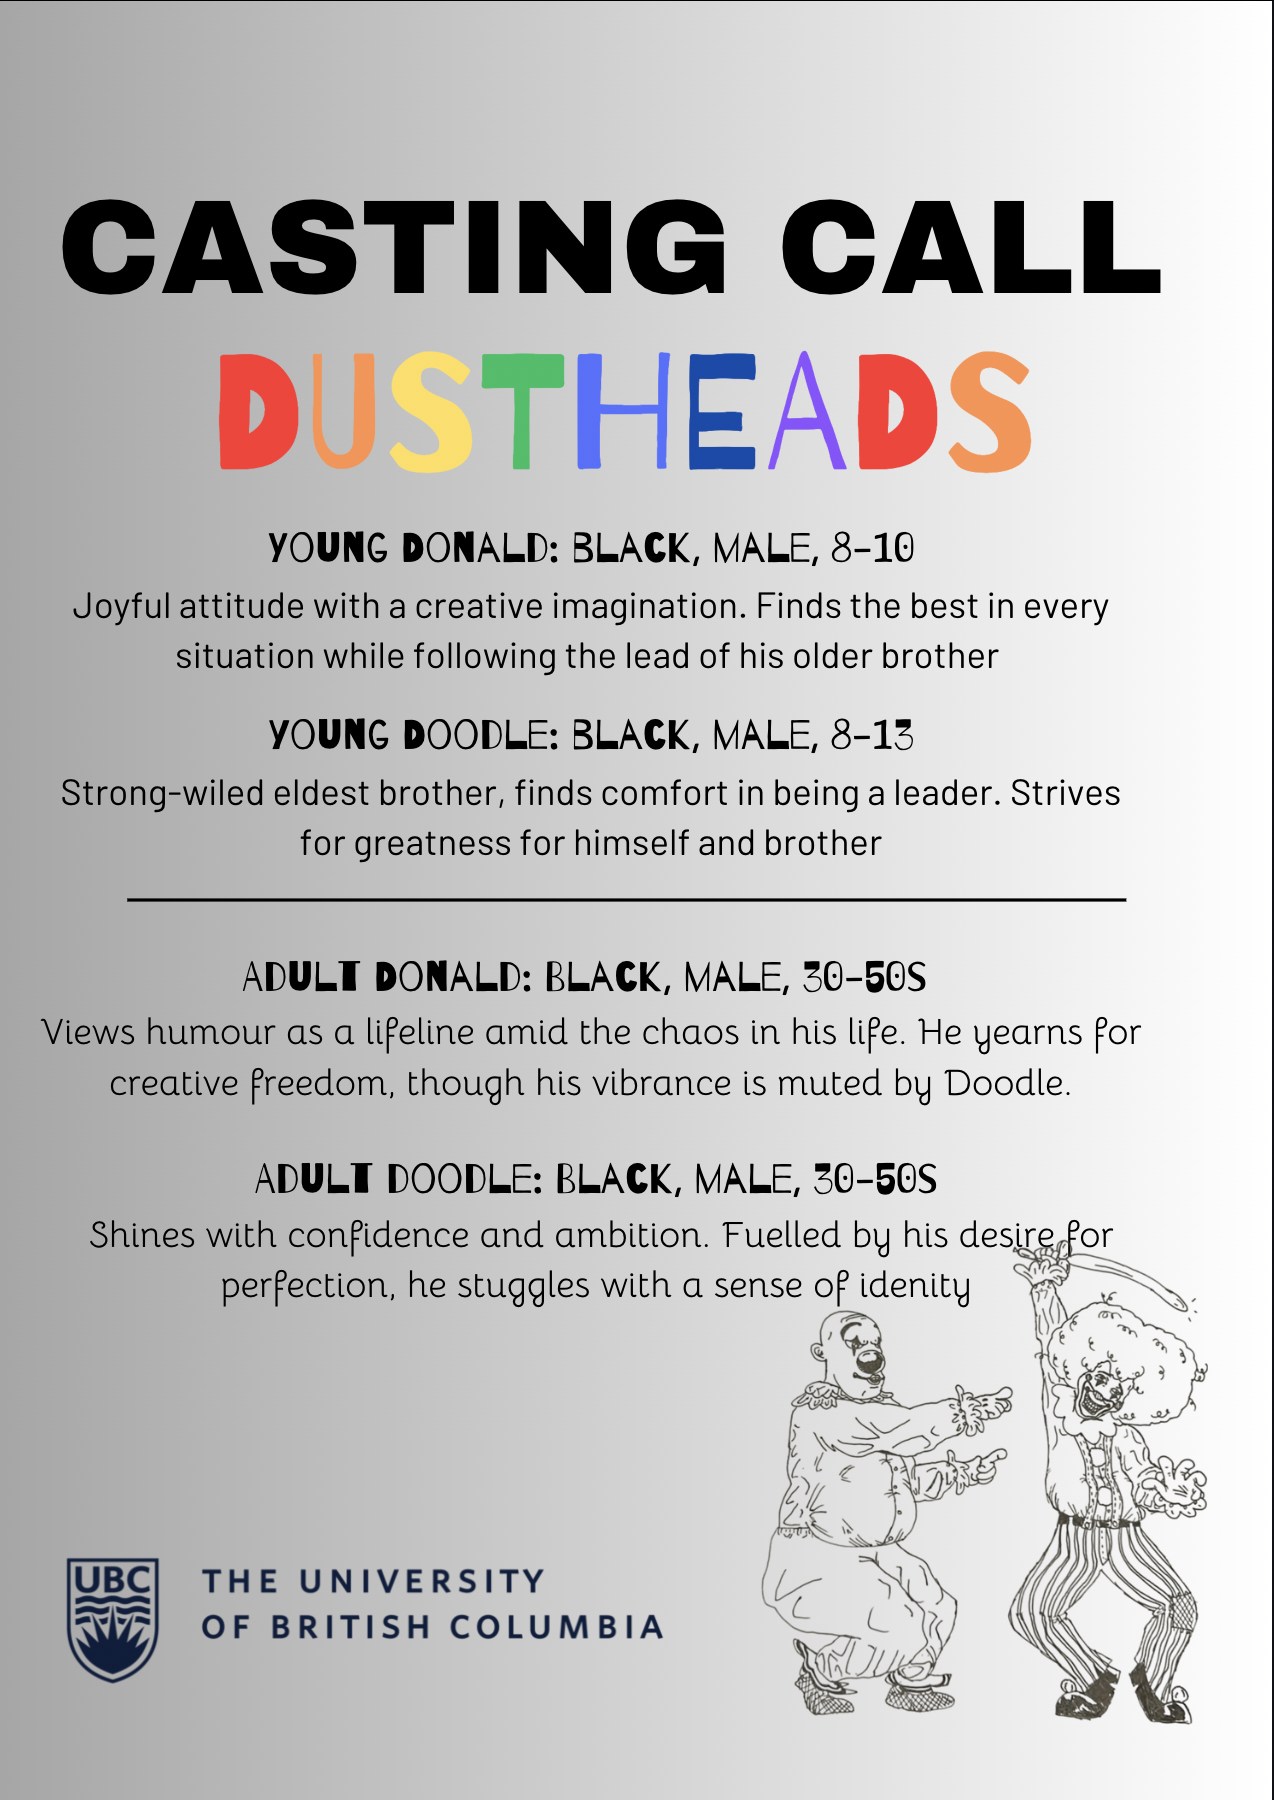 CASTING CALL
DUSTHEADS
YOUNG DONALD: BLACK, MALE, 8-10
Joyful attitude with a creative imagination. Finds the best in every
situation while following the lead of his older brother
YOUNG DOODLE: BLACK, MALE, 8-13
Strong-wiled eldest brother, finds comfort in being a leader. Strives
for greatness for himself and brother
ADULT DONALD: BLACK, MALE, 30-50S
Views humour as a lifeline amid the chaos in his life. He yearns for
creative freedom, though his vibrance is muted by Doodle.
ADULT DOODLE: BLACK, MALE, 30-50S
Shines with confidence and ambition. Fuelled by his desire for
perfection, he stuggles with a sense of idenity
UBC
THE UNIVERSITY
OF BRITISH COLUMBIA